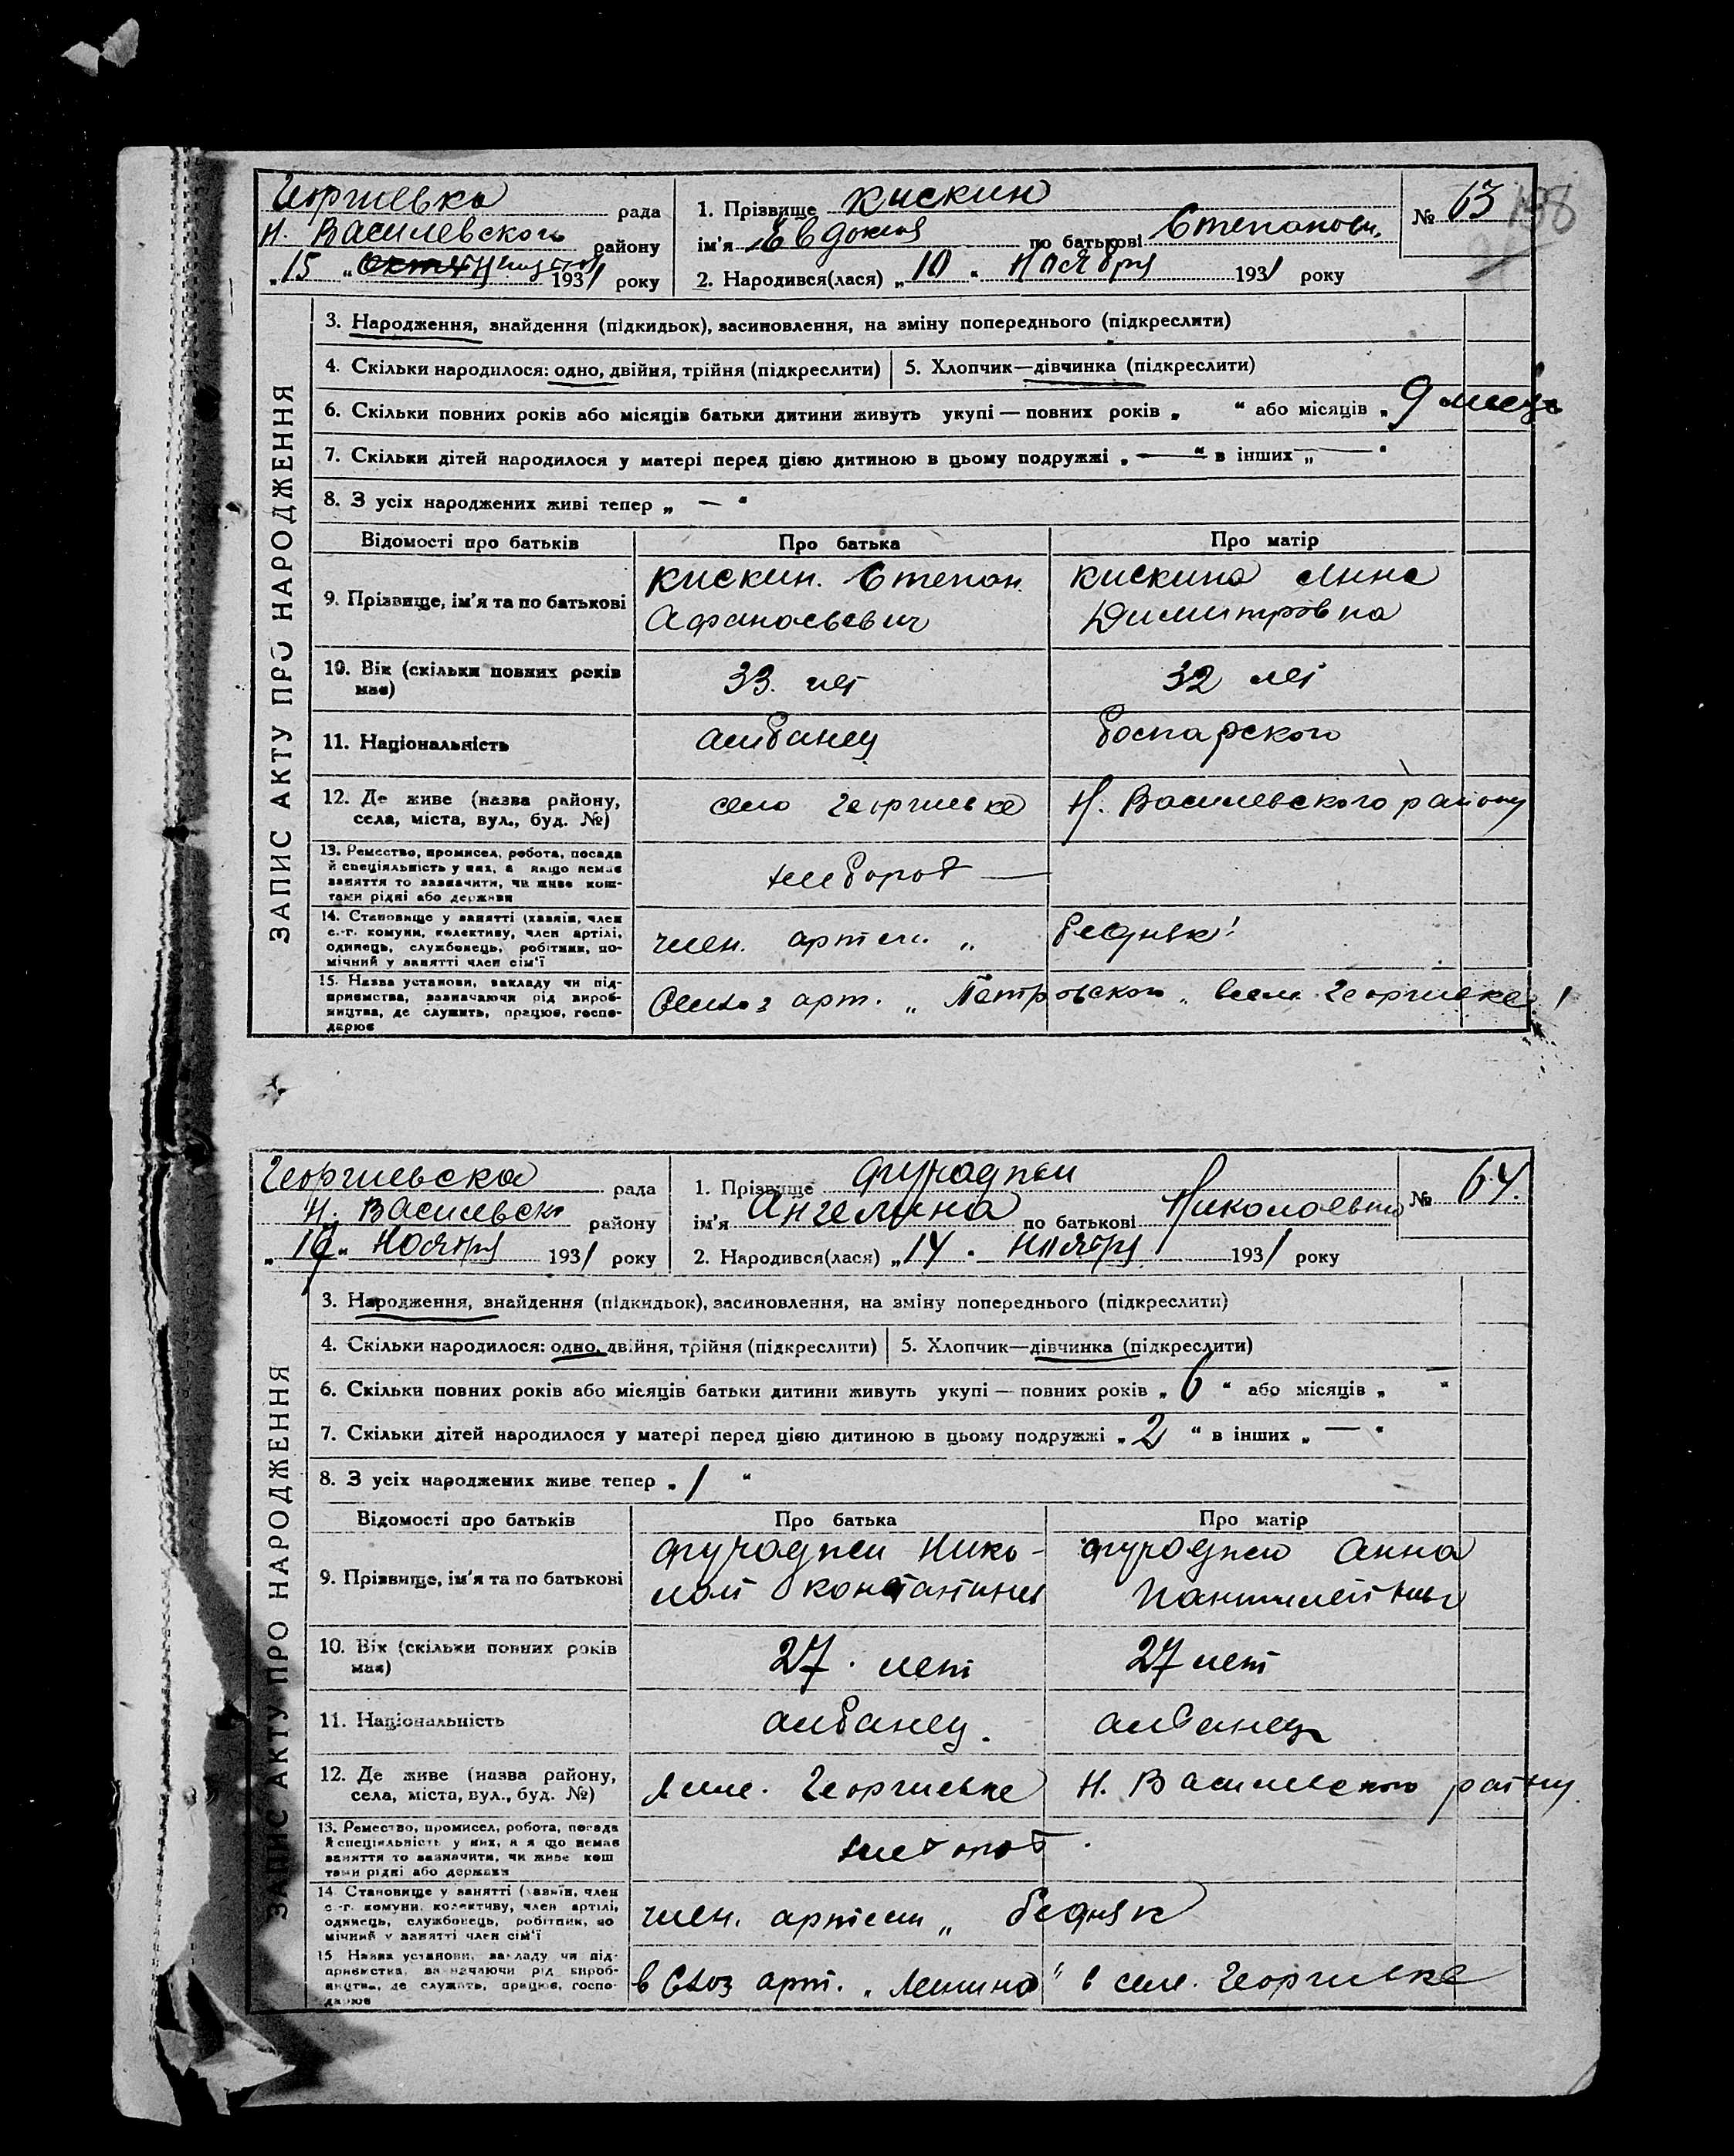 Георгиевка рада
Н. Василевского району
„15 „ октя Ноября 1931 року
1. Прізвище Кискин
ім'я Евдокия по батькові Степанови.
2. Народився(лася) „10 „ Ноября 1931 року
№ 63 198
ЗАПИС АКТУ ПРО НАРОДЖЕННЯ
3. Народження, знайдення (підкидьок), засиновлення, на зміну попереднього (підкреслити)
4. Скільки народилося: одно, двійня, трійня (підкреслити) 5. Хлопчик—дівчинка (підкреслити)
6. Скільки повних років або місяців батьки дитини живуть укупі — повних років „ “ або місяців „ 9 месяц
7. Скільки дітей народилося у матері перед цією дитиною в цьому подружжі „ — “ в інших „ — “
8. З усіх народжених живі тепер „ — “
Відомості про батьків Про батька Про матір
9. Прізвище, ім'я та по батькові Кискин. Степан. Кискина Анна
Афанасьевич Димитровна
10. Вік (скільки повних років має) 33. лет 32 лет
11. Національність албанец болгарского
12. Де живе (назва району, села, міста, вул., буд. №) село Георгиевке Н. Василевского району
13. Ремество, промисел, робота, посада
й спеціяльність у них, а якщо немає
заняття то зазначити, чи живе кош-
тами рідні або держави хлебороб —
14. Становище у занятті (хазяїн, член
с.-г. комуни, колективу, член артілі,
одинець, службовець, робітник, по-
мічний у занятті член сім'ї член. артели „ бедняк!
15. Назва установи, закладу чи під-
приємства, зазначаючи рід вироб-
ництва, де служить, працює, госпо-
дарює Сельхоз арт. „ Петровского „ в селе Георгиевке!
Георгиевска рада
Н. Василевск району
„19„ Ноября 1931 року
1. Прізвище Фучаджи
ім'я Ангелина по батькові Николаевна
2. Народився(лася) „14 „ Ноября 1931 року
№ 64.
ЗАПИС АКТУ ПРО НАРОДЖЕННЯ
3. Народження, знайдення (підкидьок), засиновлення, на зміну попереднього (підкреслити)
4. Скільки народилося: одно, двійня, трійня (підкреслити) 5. Хлопчик—дівчинка (підкреслити)
6. Скільки повних років або місяців батьки дитини живуть укупі — повних років „ 6 “ або місяців „ — “
7. Скільки дітей народилося у матері перед цією дитиною в цьому подружжі „ 2 “ в інших „ — “
8. З усіх народжених живе тепер „ 1 “
Відомості про батьків Про батька Про матір
9. Прізвище, ім'я та по батькові Фучаджи Нико- Фучаджи Анна
лай Константинов Пантилейевна
10. Вік (скільки повних років має) 27. лет 27 лет
11. Національність албанец. албанец
12. Де живе (назва району, села, міста, вул., буд. №) в селе. Георгиевке Н. Василевского району
13. Ремество, промисел, робота, посада
й спеціяльність у них, а якщо немає
заняття то зазначити, чи живе кош
тами рідні або держави хлебороб.
14. Становище у занятті (хазяїн, член
с.-г. комуни, колективу, член артілі,
одинець, службовець, робітник, по
мічний у занятті член сім'ї член. артели „ бедняк
15. Назва установи, закладу чи під-
приємства, зазначаючи рід вироб-
ництва, де служить, працює, госпо-
дарює в С/хоз арт. „ Ленина" в селе. Георгиевке